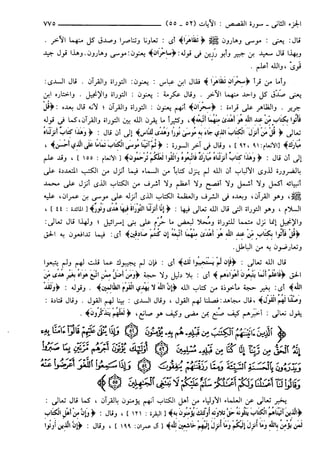 الجزء الثانى ـ سورة القصص : الآيات (٥٢ ــ ٥٥) ٧٧٥
قال: يعنى : موسى وهارون ﴿ تَظَاهَرَا ﴾ أى : تعاونا وتناصرا وصدق كل منهما الآخر .
وبهذا قال سعيد بن جبير وأبو رزين فى قوله: ﴿سَاحِرَانِ﴾ يعنون: موسى وهارون. وهذا قول جيد
قوىّ ، والله أعلم .
وأما من قرأ ﴿سِحْرَانِ تَظَاهَرَا ﴾ فقال ابن عباس : يعنون: التوراة والقرآن . قال السدى:
يعنى صدّق كل واحد منهما الآخر . وقال عكرمة : يعنون : التوراة والإنجيل . واختاره ابن
جرير . والظاهر على قراءة : ﴿سِحْرَانِ﴾ أنهم يعنون : التوراة والقرآن ؛ لأنه قال بعده : ﴿قُلْ
فَأْتُوا بِكِتَابٍ مِّنْ عِندِ اللَّهِ هُوَ أَهْدَىٰ مِنْهُمَا أَتَّبِعْهُ﴾، وكثيرا ما يقرن الله بين التوراة والقرآن، كما فى قوله
تعالى ﴿ قُلْ مَنْ أَنزَلَ الْكِتَابَ الَّذِي جَاءَ بِهِ مُوسَىٰ نُورًا وَهُدًى لِّلنَّاسِ﴾ إلى أن قال : ﴿ وَهَٰذَا كِتَابٌ أَنزَلْنَاهُ
مُبَارَكٌ﴾ [الأنعام: ٩١، ٩٢] ، وقال فى آخر السورة : ﴿ثُمَّ آتَيْنَا مُوسَى الْكِتَابَ تَمَامًا عَلَى الَّذِي أَحْسَنَ﴾ ،
إلى أن قال : ﴿ وَهَٰذَا كِتَابٌ أَنزَلْنَاهُ مُبَارَكٌ فَاتَّبِعُوهُ وَاتَّقُوا لَعَلَّكُمْ تُرْحَمُونَ﴾ [الأنعام : ١٥٥] ، وقد علم
بالضرورة لذوى الألباب أن الله لم ينزل كتاباً من السماء فيما أنزل من الكتب المتعددة على
أنبيائه أكمل ولا أشمل ولا أفصح ولا أعظم ولا أشرف من الكتاب الذى أنزل على محمد
ﷺ، وهو القرآن، وبعده فى الشرف والعظمة الكتاب الذى أنزله على موسى بن عمران، عليه
السلام ، وهو التوراة التى قال الله تعالى فيها : ﴿ إِنَّا أَنزَلْنَا التَّوْرَاةَ فِيهَا هُدًى وَنُورٌ﴾ [ المائدة : ٤٤ ] ،
والإنجيل إنما نزل متمما للتوراة ومُحلا لبعض ما حُرّم على بنى إسرائيل ؛ ولهذا قال تعالى:
﴿ قُلْ فَأْتُوا بِكِتَابٍ مِّنْ عِندِ اللَّهِ هُوَ أَهْدَىٰ مِنْهُمَا أَتَّبِعْهُ إِن كُنتُمْ صَادِقِينَ﴾ أى: فيما تدافعون به الحق
وتعارضون به من الباطل.
قال الله تعالى : ﴿فَإِن لَّمْ يَسْتَجِيبُوا لَكَ ﴾ أى : فإن لم يجيبوك عما قلت لهم ولم يتبعوا
الحق ﴿فَاعْلَمْ أَنَّمَا يَتَّبِعُونَ أَهْوَاءَهُمْ ﴾ أى : بلا دليل ولا حجة ﴿وَمَنْ أَضَلُّ مِمَّنِ اتَّبَعَ هَوَاهُ بِغَيْرِ هُدًى مِّنَ
اللَّهِ﴾ أى: بغير حجة مأخوذة من كتاب الله ﴿ إِنَّ اللَّهَ لا يَهْدِي الْقَوْمَ الظَّالِمِينَ﴾ . وقوله : ﴿وَلَقَدْ
وَصَّلْنَا لَهُمُ الْقَوْلَ﴾ ، قال مجاهد : فصلنا لهم القول ، وقال السدى : بينا لهم القول . وقال قتادة :
يقول تعالى : أخبرهم كيف صنع بمن مضى وكيف هو صانع ، ﴿ لَعَلَّهُمْ يَتَذَكَّرُونَ ﴾ .
﴿ الَّذِينَ آتَيْنَاهُمُ الْكِتَابَ مِن قَبْلِهِ هُم بِهِ يُؤْمِنُونَ ﴿٥٢﴾ وَإِذَا يُتْلَىٰ عَلَيْهِمْ قَالُوا آمَنَّا بِهِ
إِنَّهُ الْحَقُّ مِن رَّبِّنَا إِنَّا كُنَّا مِن قَبْلِهِ مُسْلِمِينَ ﴿٥٣﴾ أُولَٰئِكَ يُؤْتَوْنَ أَجْرَهُم مَّرَّتَيْنِ بِمَا صَبَرُوا
وَيَدْرَءُونَ بِالْحَسَنَةِ السَّيِّئَةَ وَمِمَّا رَزَقْنَاهُمْ يُنفِقُونَ ﴿٥٤﴾ وَإِذَا سَمِعُوا اللَّغْوَ أَعْرَضُوا عَنْهُ
يخبر تعالى عن العلماء الأولياء من أهل الكتاب أنهم يؤمنون بالقرآن ، كما قال تعالى :
﴿الَّذِينَ آتَيْنَاهُمُ الْكِتَابَ يَتْلُونَهُ حَقَّ تِلاوَتِهِ أُولَٰئِكَ يُؤْمِنُونَ بِهِ﴾ [البقرة : ١٢١] ، وقال : ﴿ وَإِنَّ مِنْ أَهْلِ الْكِتَابِ
لَمَن يُؤْمِنُ بِاللَّهِ وَمَا أُنزِلَ إِلَيْكُمْ وَمَا أُنزِلَ إِلَيْهِمْ خَاشِعِينَ لِلَّهِ﴾ [آل عمران: ١٩٩] ، وقال : ﴿ إِنَّ الَّذِينَ أُوتُوا